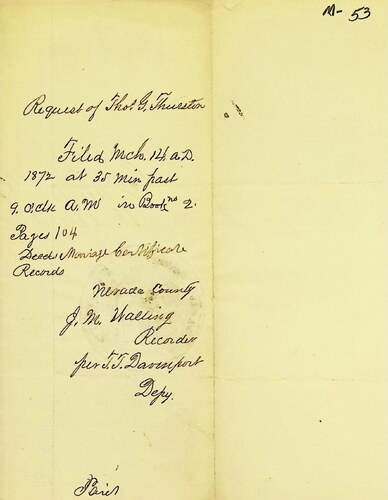 M- 53
Request of Thos G. Thurston
Filed Mch. 14 A.D.
1872 at 35 min past
9. O.clk A.M in Book no 2.
Pages 104
Deeds Marriage Certificate
Records
Nevada County
J. M. Walling
Recorder
per T.T. Davenport
Depy.
Paid